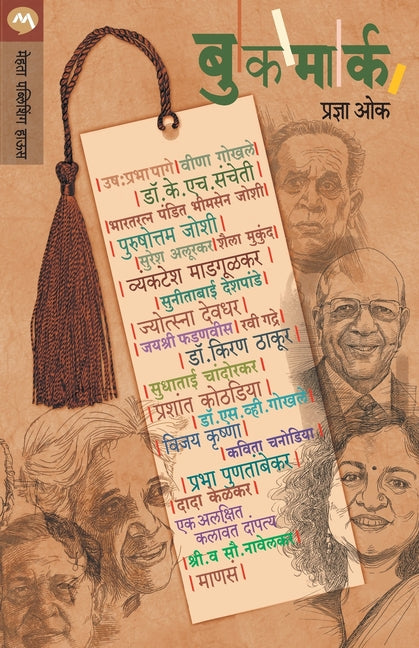 मेहता पब्लिशिंग हाऊस
बुकमार्क
प्रज्ञा ओक
|उषःप्रभा पागे|वीणा गोखले|
डॉ.के.एच.संचेती|
|भारतरत्न पंडित भीमसेन जोशी|
पुरुषोत्तम जोशी|
|सुरेश अलूरकर|शैला मुकुंद|
व्यकटेश माडगूळकर|
सुनीताबाई देशपांडे|
|ज्योत्स्ना देवधर|
|जयश्री फडणवीस|रवी गद्रे|
|डॉ.किरण ठाकूर|
|सुधाताई चांदोरकर|
|प्रशांत कोठडिया|
|डॉ.एस.व्ही.गोखले|
|विजय कृष्णा|
|कविता चनोडिया|
|प्रभा पुणतांबेकर|
|दादा केळकर|
एक अलक्षित
कलावंत दांपत्य|
श्री.व सौ.नावेलकर|
|माणसं|